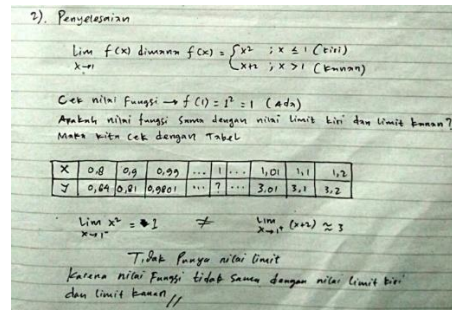 2). Penyelesaian
Lim f(x) dimana f(x) = { x² ; x ≤ 1 (kiri)
x→1 x+2 ; x > 1 (kanan)
Cek nilai Fungsi → f(1) = 1² = 1 (Ada)
Apakah nilai fungsi sama dengan nilai limit kiri dan limit kanan?
Maka kita cek dengan Tabel
X 0,8 0,9 0,99 ... 1 ... 1,01 1,1 1,2
y 0,64 0,81 0,9801 ... ? ... 3,01 3,1 3,2
Lim x² = 1 ≠ Lim (x+2) ≈ 3
x→1⁻ x→1⁺
Tidak Punya nilai limit
Karena nilai Fungsi tidak sama dengan nilai limit kiri
dan limit kanan //